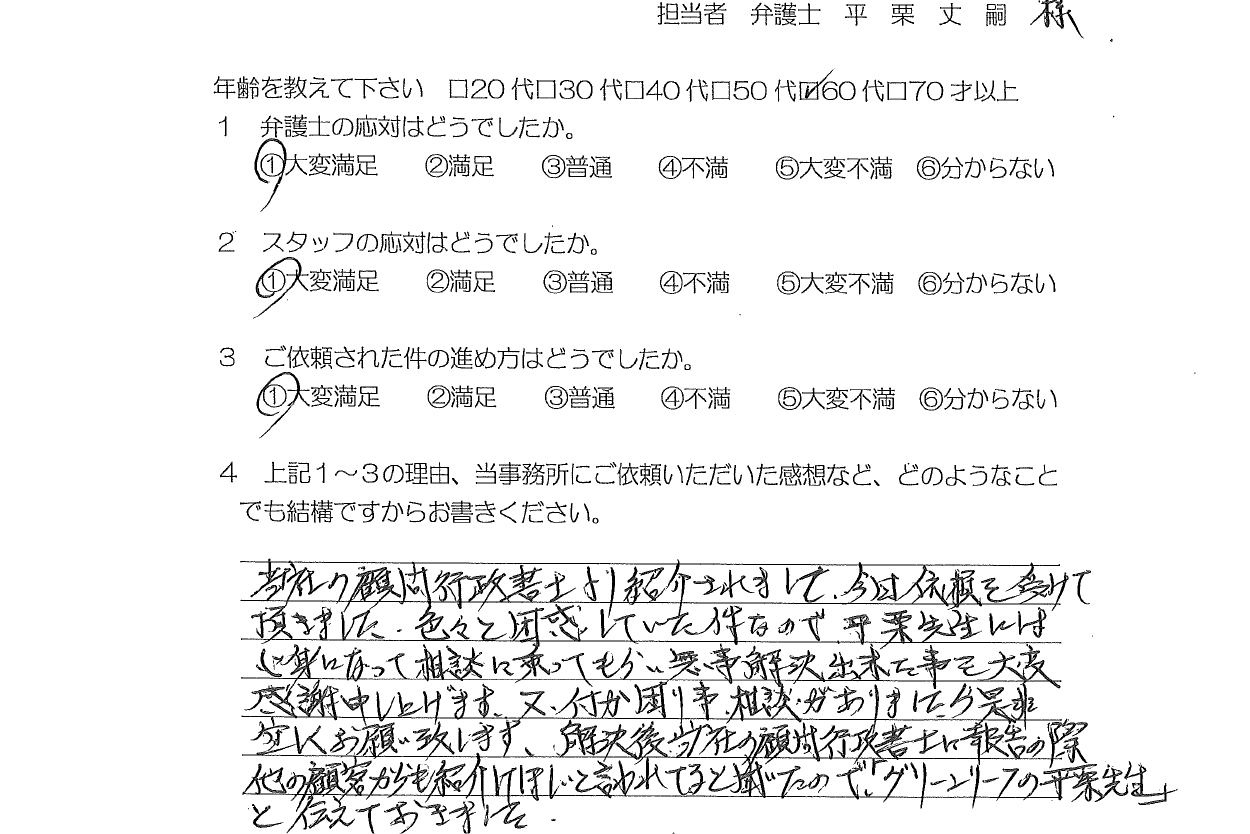 担当者　弁護士　平　栗　丈　嗣　様
年齢を教えて下さい　□20代□30代□40代□50代☑60代□70才以上
１　弁護士の応対はどうでしたか。
①大変満足　②満足　③普通　④不満　⑤大変不満　⑥分からない
２　スタッフの応対はどうでしたか。
①大変満足　②満足　③普通　④不満　⑤大変不満　⑥分からない
３　ご依頼された件の進め方はどうでしたか。
①大変満足　②満足　③普通　④不満　⑤大変不満　⑥分からない
４　上記１～３の理由、当事務所にご依頼いただいた感想など、どのようなこと
でも結構ですからお書きください。
当社の顧問行政書士より紹介されまして、今回依頼を受けて
頂きました。色々と困惑していた件なので、平栗先生には
心身になって相談に乗ってもらい無事解決出来た事を大変
感謝申し上げます。又、何か困り事、相談がありましたら是非
宜しくお願い致します。解決後当社の顧問行政書士に報告の際
他の顧客からも紹介してほしいと言われてると
たので「グリーンリーフの平栗先生」
と伝えておきました。